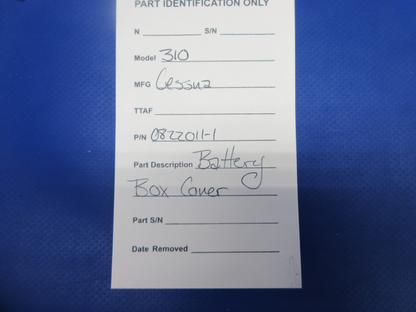 PART IDENTIFICATION ONLY
N S/N
Model 310
MFG Cessna
TTAF
P/N 0822011-1
Part Description Battery
Box Cover
Part S/N
Date Removed